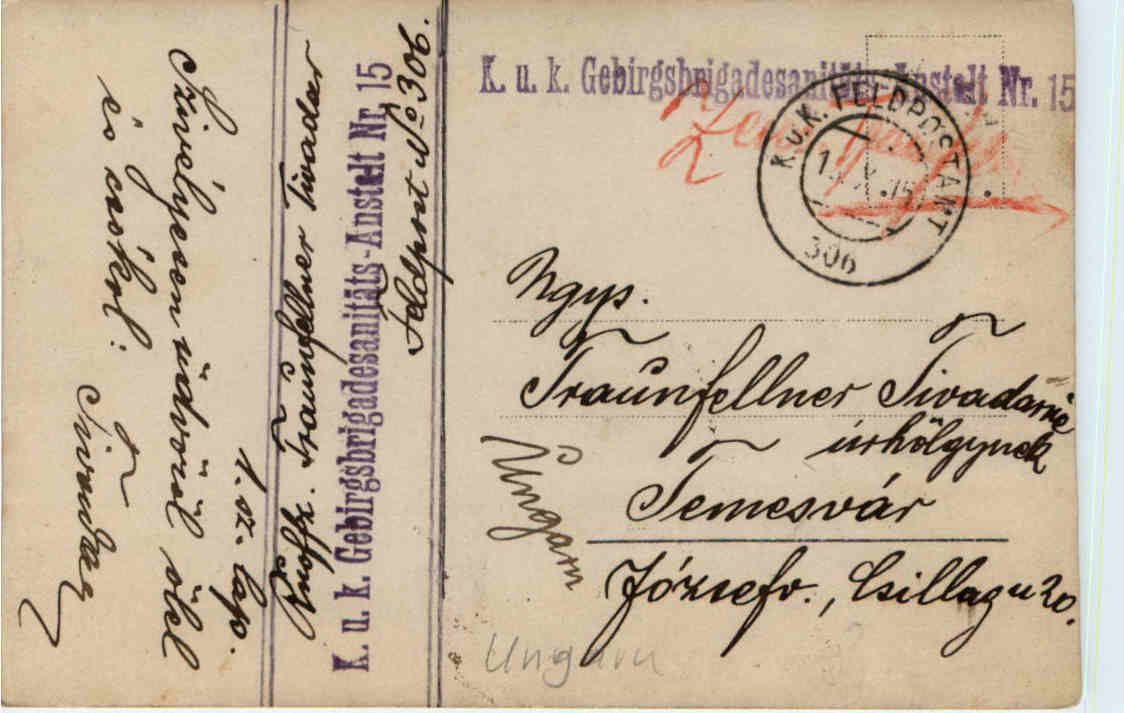 Szívélyesen üdvözöl ölel
és csókol:
Tivadar
1. oz. lapo.
Traunfellner Tivadar
K. u. k. Gebirgsbrigadesanitäts-Anstalt Nr. 15
Feldpost No 306.
K. u. k. Gebirgsbrigadesanitäts-Anstalt Nr. 15
K.u.K. FELDPOSTAMT
306
Ngys.
Traunfellner Tivadarné
úrhölgynek
Temesvár
Józsefv., Csillag u 20.
Ungarn
Ungarn